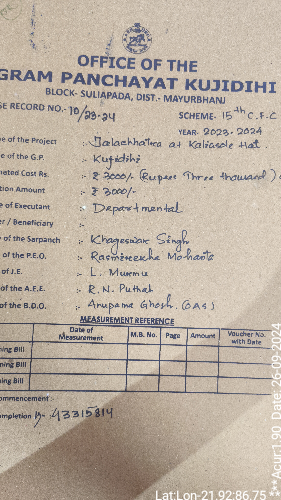 OFFICE OF THE
GRAM PANCHAYAT KUJIDIHI
BLOCK- SULIAPADA, DIST.- MAYURBHANJ
SE RECORD NO.- 10/23-24 SCHEME- 15th C.F.C
YEAR- 2023-2024
e of the Project :- Jalachhatra at Kaliasole Hat.
e of the G.P. :- Kujidihi
mated Cost Rs. :- ₹ 3000/- (Rupees Three thousand)
tion Amount :- ₹ 3000/-
e of Executant :- Departmental
er / Beneficiary :-
of the Sarpanch :- Khageswar Singh
of the P.E.O. :- Rasmirekha Mohanta
of J.E. :- L. Murmu
of the A.E.E. :- R.N. Puthal
of the B.D.O. :- Anupama Ghosh. (OAS)
MEASUREMENT REFERENCE
Date of Measurement M.B. No. Page Amount Voucher No. with Date
ning Bill
ning Bill
ning Bill
ommencement :-
ompletion :- 43315814
Lat:Lon-21.92:86.75
***Acur:1.90 Date:26-09-2024